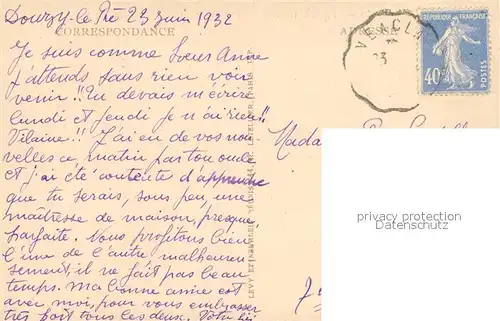 Douzy-le Pré 23 juin 1932
CORRESPONDANCE
ADRESSE
RÉPUBLIQUE FRANÇAISE
40c
POSTES
23
Je suis comme Soeur Anne
j'attends sans rien voir
venir!! Tu devais m'écrire
lundi et jeudi je n'ai rien!!
Vilaine!! J'ai en de vos nou
velles ce matin par ton oncle
et j'ai été contente d'apprendre
que tu serais, sous peu, une
maîtresse de maison, presque
parfaite. Nous profitons bien
l'une de l'autre malheureu
sement, il ne fait pas beau
temps. Ma bonne amie est
avec moi, pour vous embrasser
très fort tous les deux. Votre
Madame
privacy protection
VERSANDSCHUTZ